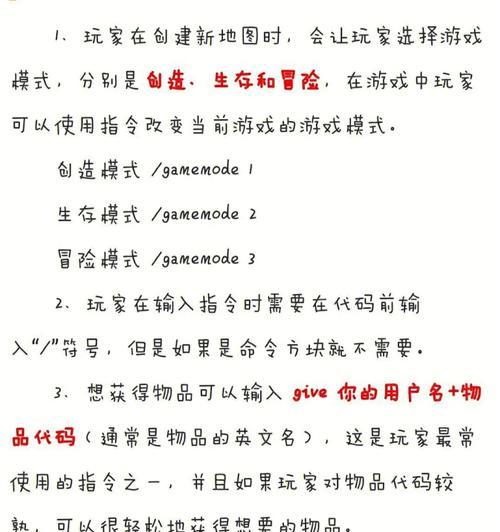 1、玩家在创建新地图时,会让玩家选择游戏
模式,分别是创造、生存和冒险,在游戏中玩家
可以使用指令改变当前游戏的游戏模式。
创造模式 /gamemode 1
生存模式 /gamemode 2
冒险模式 /gamemode 3
2、玩家在输入指令时需要在代码前输
入“/”符号,但是如果是命令方块就不需要。
3、想获得物品可以输入 give 你的用户名+物
品代码(通常是物品的英文名),这是玩家最常
使用的指令之一,并且如果玩家对物品代码较
熟,可以很轻松地获得想要的物品。